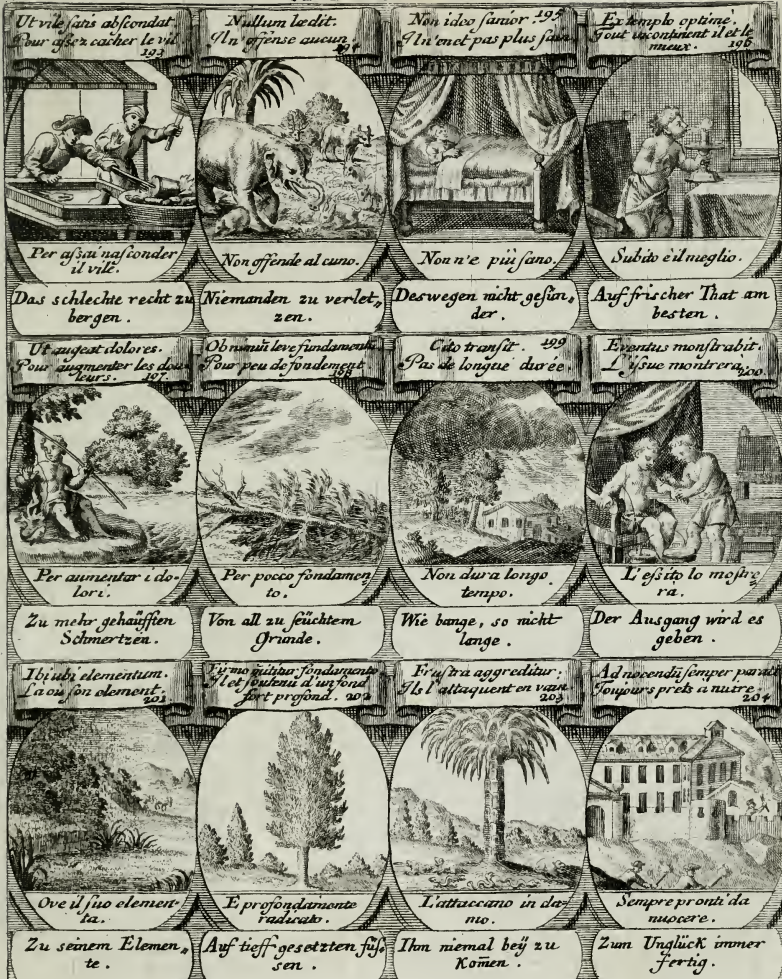 Ut vile satis abscondat.
Pour assez cacher le vil
193
Per assai nasconder
il vile.
Das schlechte recht zu
bergen.
Nullum lædit.
Il n'offense aucun.
194
Non offende al cuno.
Niemanden zu verlet„
zen.
Non ideo sanior. 195
Il n'en et pas plus sain
Non n'e più sano.
Deswegen nicht gesün„
der.
Extemplo optimè.
Tout incontinent il et le
mieux. 196
Subito è il meglio.
Auf frischer That am
besten.
Ut augeat dolores.
Pour augmenter les dou
leurs. 197.
Per aumentar i do-
lori.
Zu mehr gehäufften
Schmertzen.
Ob nimiũ leve fundament.
Pour peu de fondement
198
Per pocco fondamen
to.
Von all zu feüchtem
Grunde.
Cito transit. 199
Pas de longue durée
Non dura longo
tempo.
Wie bange, so nicht
lange.
Eventus monstrabit.
L'issue montrera,
200
L'essito lo mostre
ra.
Der Ausgang wird es
geben.
Ibi ubi elementum.
La ou son element.
201
Ove il suo elemen-
ta.
Zu seinem Elemen„
te.
fundamento
Il et soutenu d'un fond
fort profond. 202
E profondamente
radicato.
Auf tieff gesetzten füs-
sen.
Frustra aggreditur;
Ils l'attaquent en vain
203
L'attaccano in da-
no.
Ihm niemal beÿ zu
Kom̃en.
Ad nocendũ semper parati
Toujours prets a nuire.
204
Sempre pronti da
nuocere.
Zum Unglück immer
fertig.